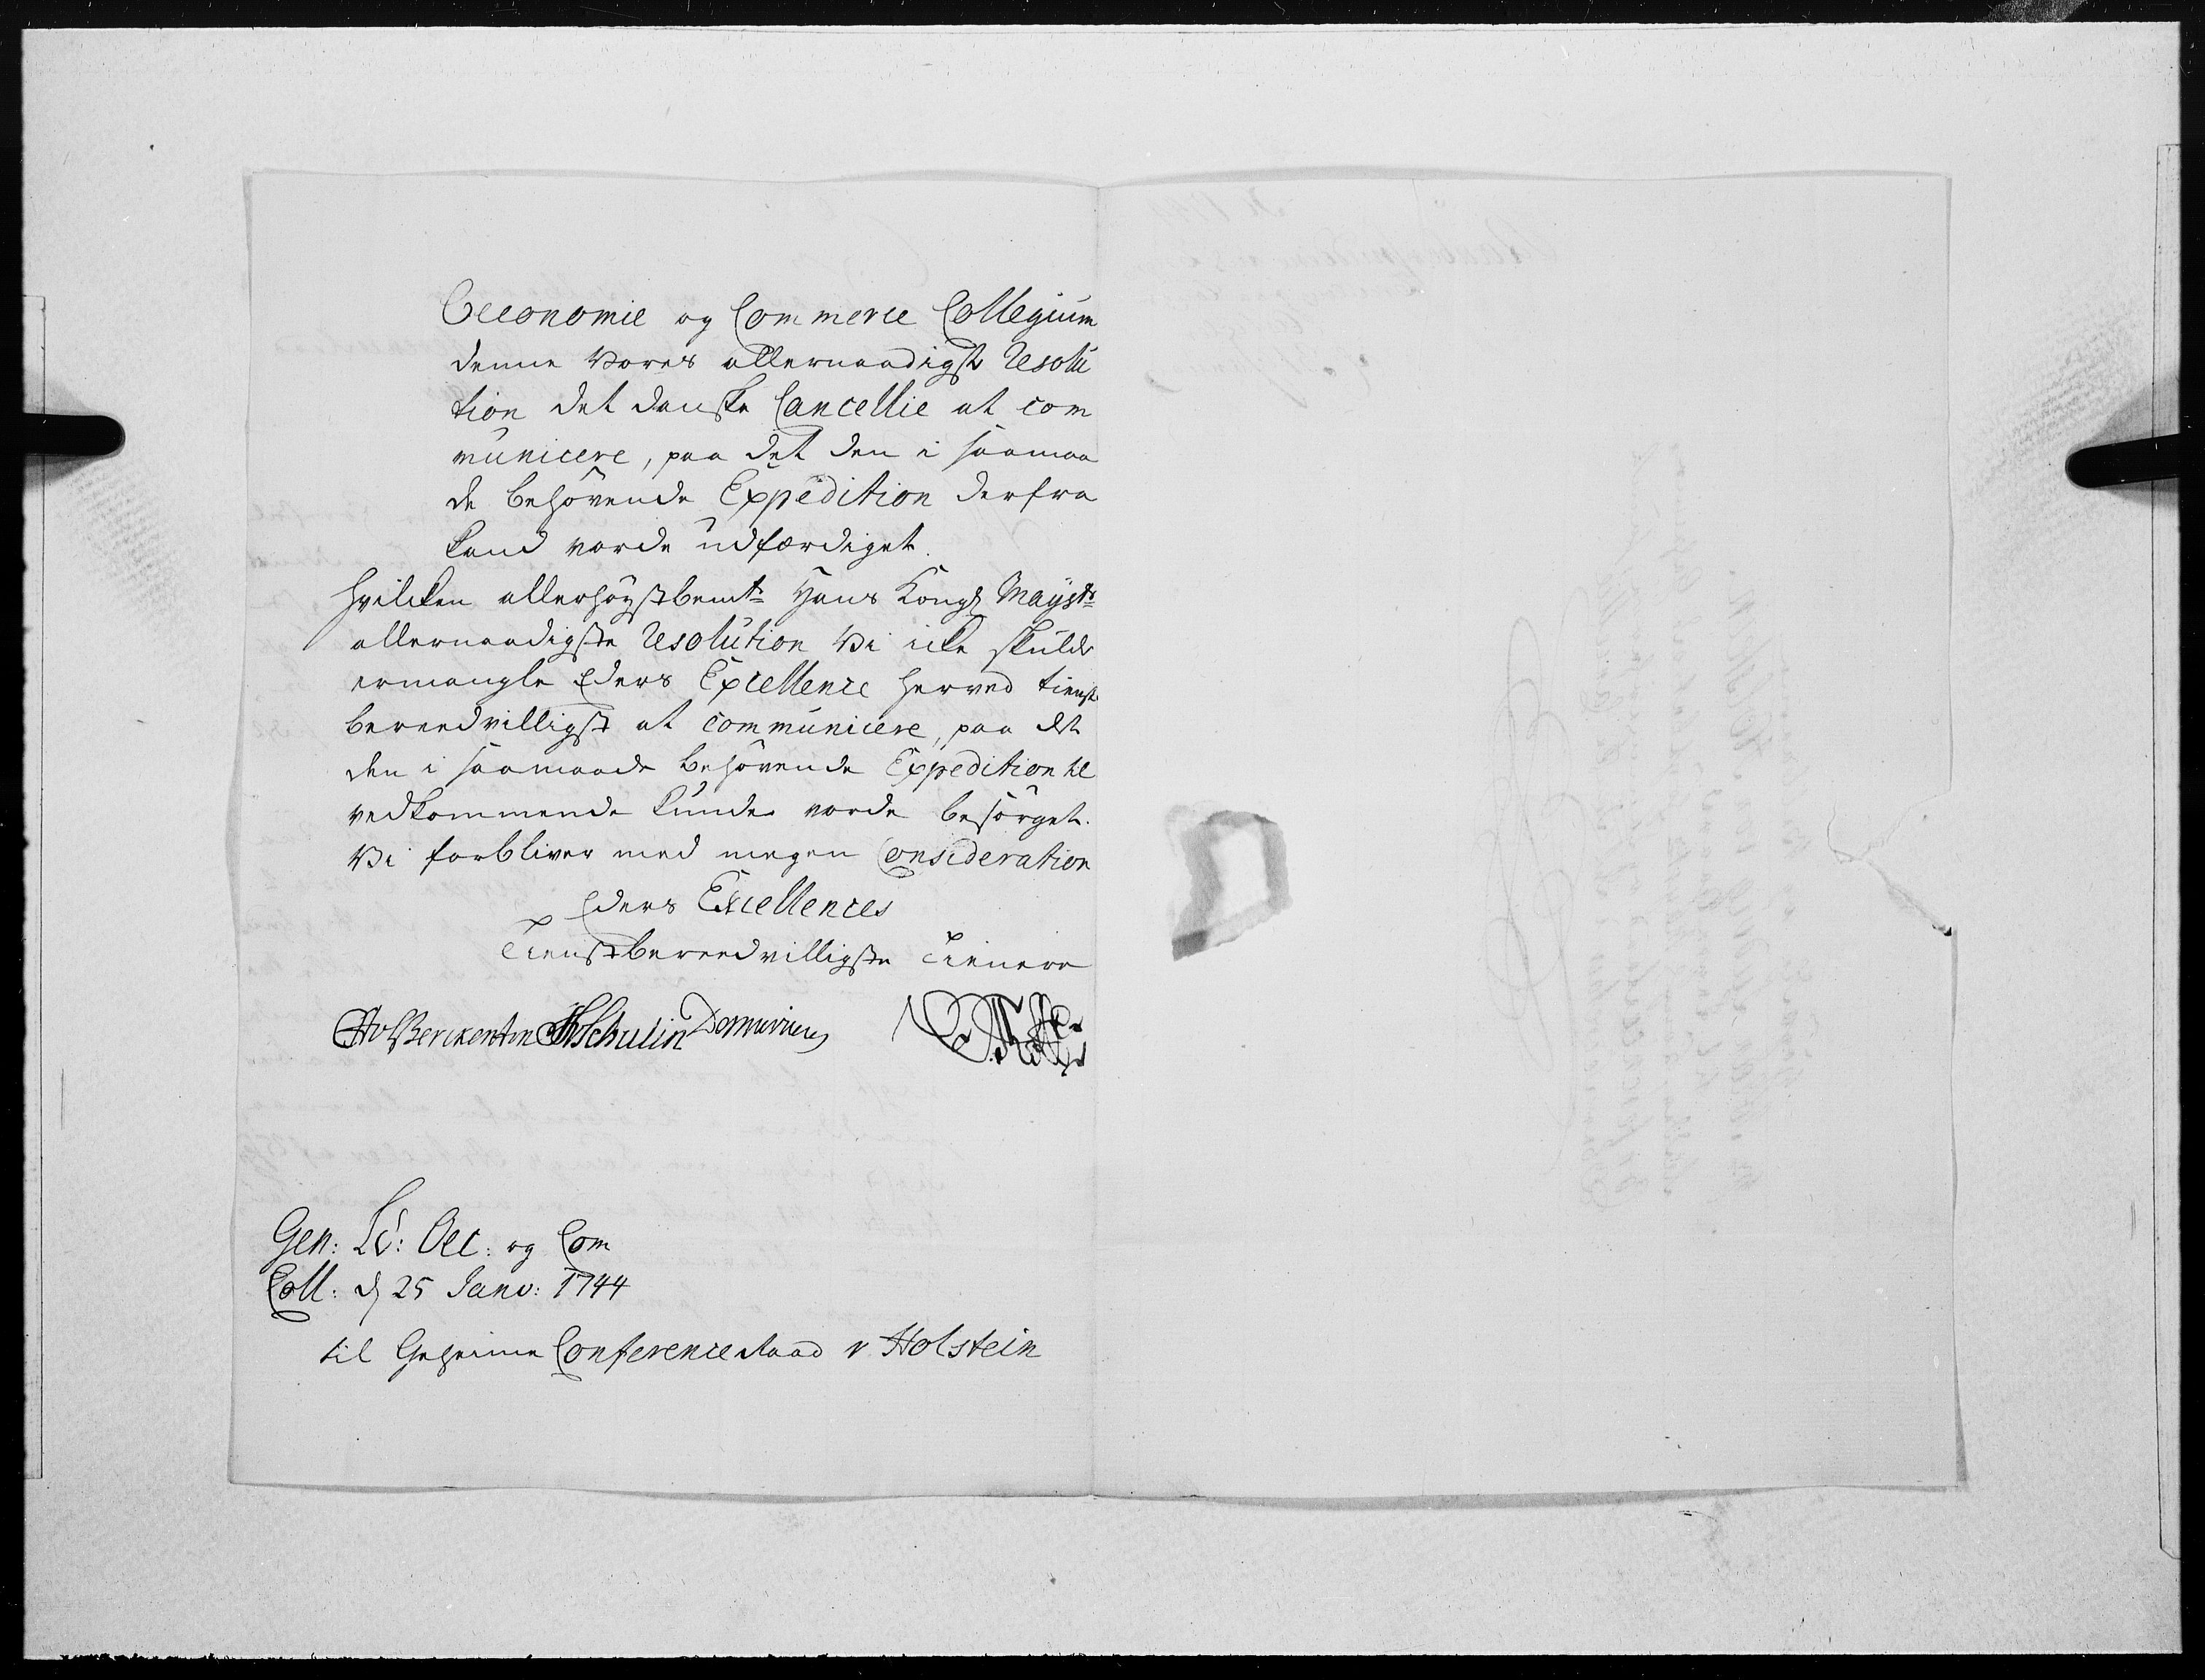 Oeconomie og Commerce Collegium
denne Vores allernaadigst Resolu
tion det danske Cancellie at com
municere, paa det den i saamaa
de behøvende Expedition derfra
kand vorde udfærdiget.
hvilcken allerhøystbemte Hans Kongl Mayts
allernaadigste Resolution Vi icke skulde
ermangle Eders Excellence herved tienst
beredvilligst at communicere, paa det
den i saamaade behøvende Expedition til
vedkommende kunde vorde besørget.
Vi forbliver med megen Consideration
Eders Excellences
Tienstberedvilligste Tienere
Berckentin JSSchulin
Gen: Ld: Oec: og Com
Coll: d 25 Janv: 1744
til Geheime Conference Raad v Holstein